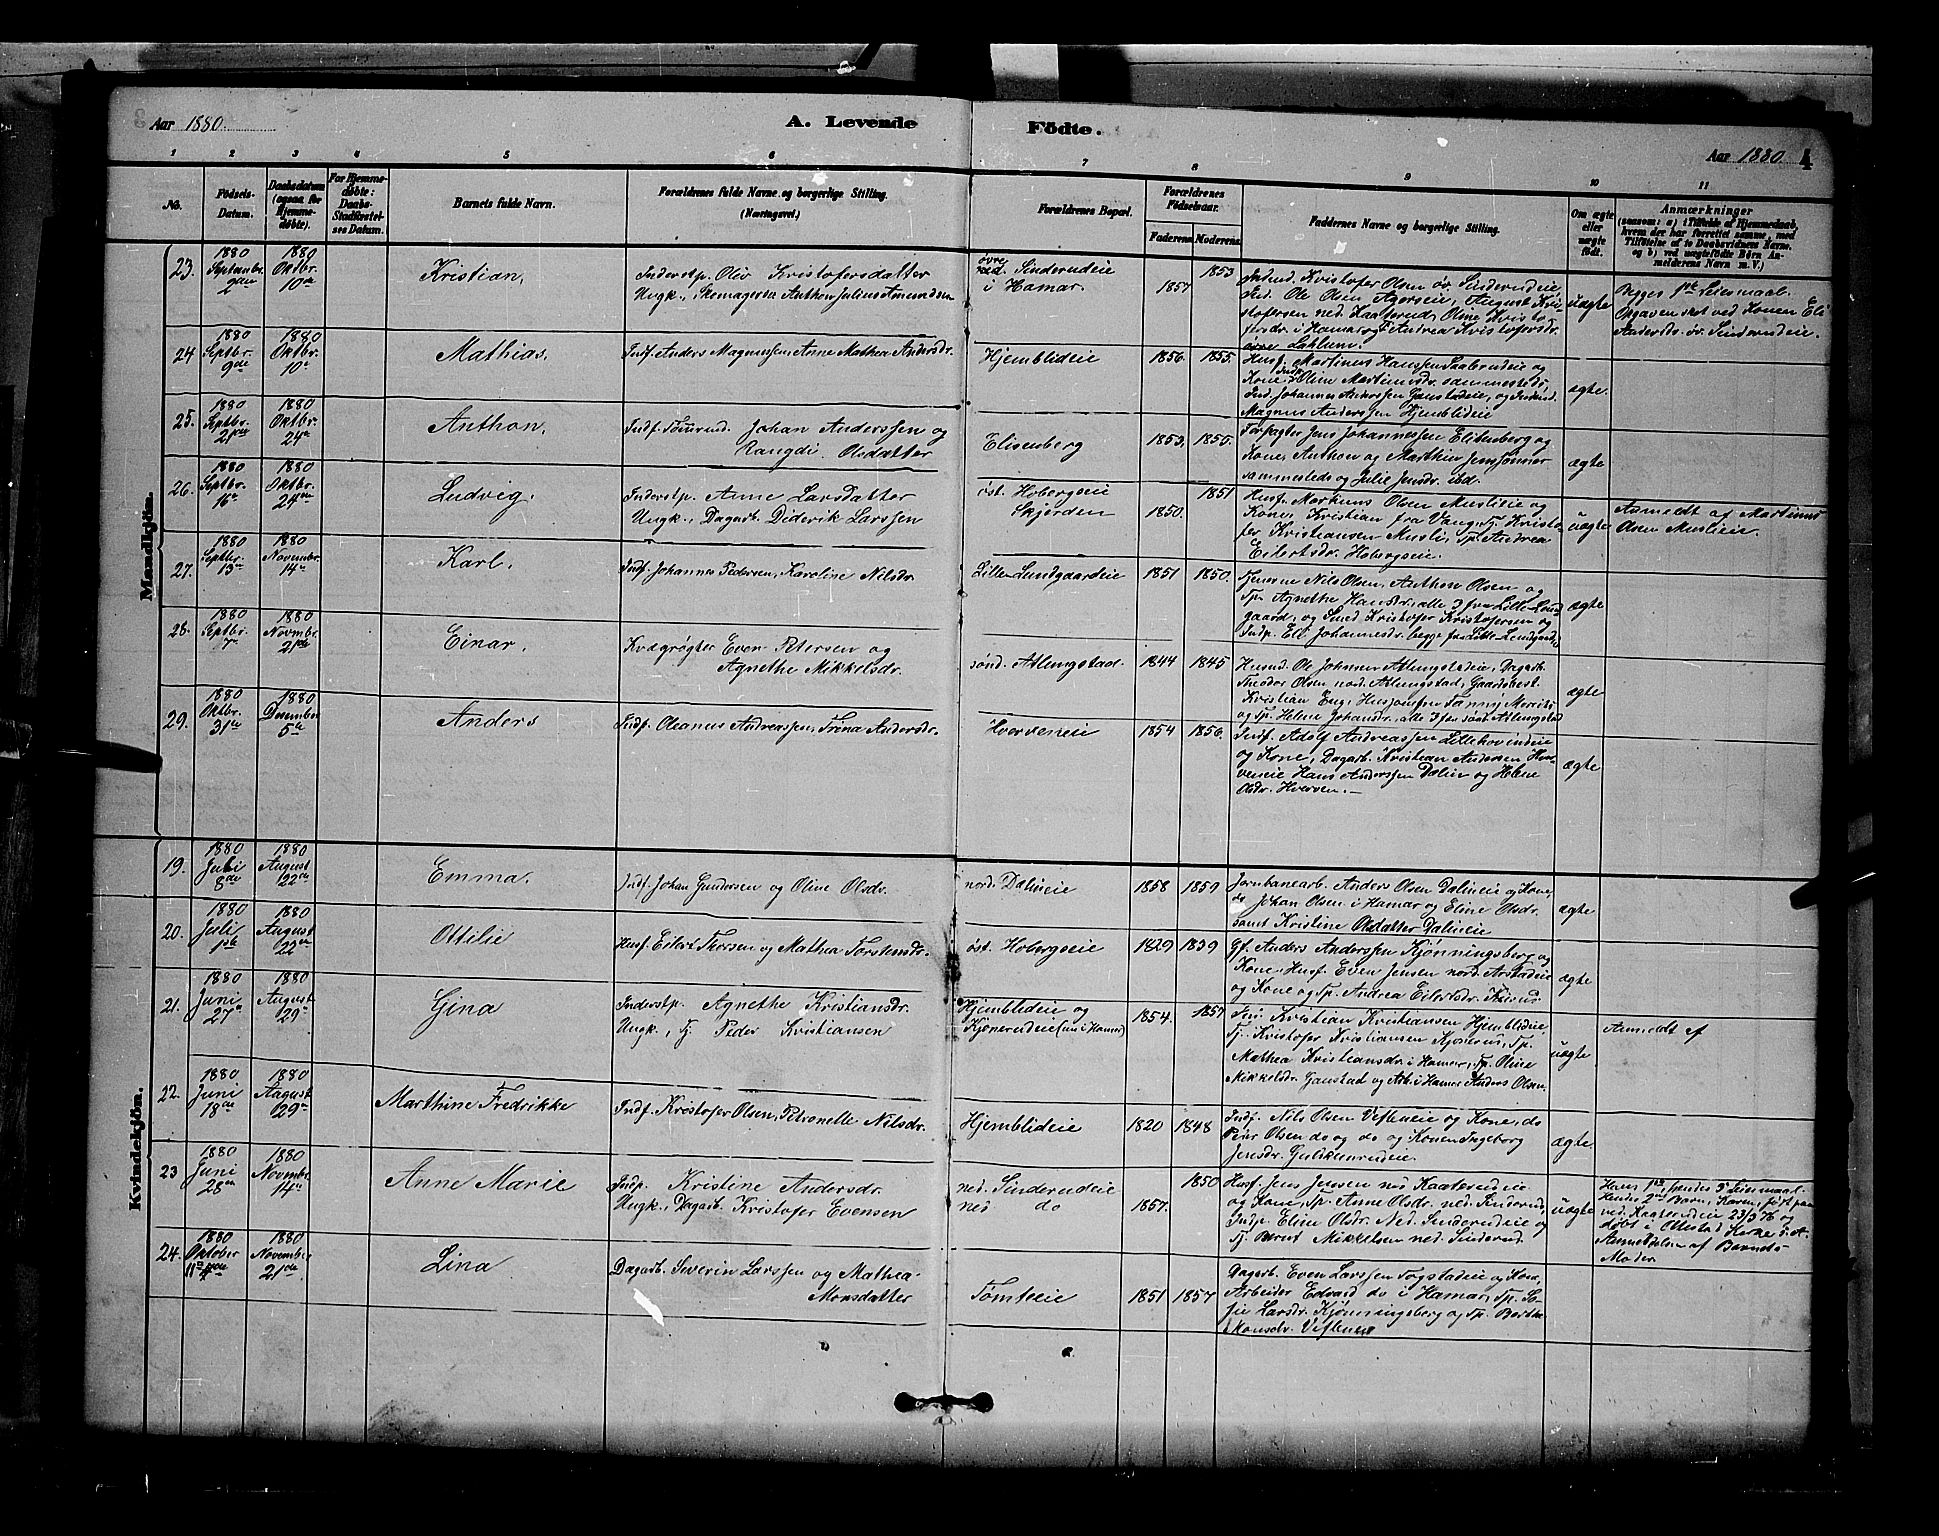 Aar 1880.
A. Levende Födte.
Aar 1880
4
1 2 3 4 5 6 7 8 9 10 11
No.
Födsels-Datum.
Daabsdatum (ogsaa for Hjemmedöbte).
For Hjemmedöbte: Daabs-Stadfæstelses Datum.
Barnets fulde Navn.
Forældrenes fulde Navne og borgerlige Stilling.
(Næringsvei.)
Forældrenes Bopæl.
Forældrenes Födselsaar.
Faderens. Moderens.
Faddernes Navne og borgerlige Stilling.
Om ægte eller uægte födt.
Anmærkninger
(saasom: a) i Tilfælde af Hjemmedaab, hvem der har forrettet samme, med Tilföielse af to Daabsvidners Navne. og b) ved uægtefödte Börn Anmelderens Navn m. V.)
Mandkjön.
23. 1880 Septembr. 2 1880 Oktbr. 10de Kristian,
Inderstp. Oliv Kristofersdatter
Ungk., Skomagersv. Anthon Julius Amundsen
øvre Sinderudeie
i Hamar.
1857 1853
Indsid. Kristofer Olsen øv. Sinderudeie
Ole Olsen Agerseie, August Kri-
stofersen ned. Kaaterud, Oline Kristo-
fersdr. i Hamar og Andrea Kristofersdr.
øvre Laklum.
uægte
Begges 1ste Leiermaal.
Opgaven skot ved Konen Eli
Andersdr. öv. Sinderudeie.
24 1880 Septbr. 9de 1880 Oktbr. 10de Mathias,
Indf. Anders Magnussen, Anne Mathea Andersdr.
Hjemblideie 1856. 1855.
Husf. Martinus Hanssen Saaberudeie og
Kone, Indp. Oline Martinusdr. sammesteds,
Ind. Johannes Anderssen Ganstadeie, og Indsid.
Magnus Anderssen Hjemblideie
ægte.
25. 1880 Septbr. 21de 1880 Oktbr. 24de Anthon,
Indf. Tömrmd. Johan Anderssen og
Rangdi Olsdatter
Elisenberg 1853. 1855.
Forpagter Jens Johannessen Elisenberg og
Kone, Anthon og Marthin Jenssönner
sammesteds og Julie Jensdr. ibd.
ægte
26. 1880 Septbr. 16de 1880 Oktbr. 24de Ludvig.
Inderstp. Anne Larsdatter
Ungk., Dagarb. Diderik Larssen
öst. Hobergseie
Skjerden
1850. 1851
Husf. Markuns Olsen Muslieie og
Kone, Kristian fra Vang, Tj. Kristo-
fer Kristiansen Musli, Tp. Andrea
Eilertsdr. Hobergseie.
uægte
Anmeldt af Martinus
Olsen Muslieie.
27. 1880 Septbr. 13de 1880 Novembr. 14de Karl.
Indf. Johannes Pedersen, Karoline Nilsdr.
Lille-Lundgaardeie 1851 1850.
Tjenerne Nils Olsen, Anthon Olsen og
Tp. Agnethe Hansdr., alle 3 fra Lille-Lund
gaard, og Smed Kristofer Kristofersen og
Indp. Eli Johannesdr. begge fra Lille Lundgaard
ægte
28. 1880 Septbr. 7de 1880 Novmbr. 21de Einar.
Kvægrögter Even Petersen og
Agnethe Mikkelsdr.
sönd. Atlungstad. 1844 1845
Husmd. Ole Johannes Atlungstadeie, Dagarb.
Theodor Olsen nord. Atlungstad, Gaardsbest.
Kristian Eng, Husjomfru Fanny
og Tp. Helene Johansdr., alle 3 fra sönd. Atlungstad
ægte
29. 1880 Oktbr. 31te 1880 Desember 5te Anders
Indf. Oleanus Andreassen, Trena Andersdr.
Hverveneie 1854 1856.
Indf. Adolf Andreassen Lillehovindeie
og Kone, Dagarb. Kristian Andersen Hver-
veneie Hans Anderssen Dælin og Helene
Olsdr. Hverven. —
ægte
Kvindekjön.
19. 1880 Juli 8de 1880 August 22de Emma.
Indf. Johan Gundersen og Oline Olsdr.
nord. Dælineie 1858 1859
Jernbanearb. Anders Olsen Dalineie og Kone,
do Johan Olsen i Hamar og Eline Olsdr.
samt Kristine Olsdatter Dalineie
ægte
20. 1880 Juli 1ste 1880 August 22de Ottilie
Husf. Eilert Thorsen og Mathea Torstensdr.
öst. Hobergseie 1829 1839
Gf. Anders Anderssen Kjönningsberg og
Kone, Husf. Even Jensen nord. Arstadeie
og Kone og Tp. Andrea Eilertsdr.
ægte
21. 1880 Juni 27de 1880 August 29de Gina
Inderstp. Agnethe Kristiansdr.
Ungk., Tj. Peder Kristiansen
Hjemblideie og
Kjonerudeie (nu i Hamar)
1854. 1857
Kristian Kristiansen Hjemblideie,
Tj. Kristofer Kristiansen Kjonerud, Tp.
Mathea Kristiansdr. i Hamar, Tp. Oline
Mikkelsdr. Ganstad og Arb. i Hamar Anders Olsen.
uægte
Anmeldt af
22. 1880 Juni 18de 1880 August 29de Marthine Fredrikke
Indf. Kristofer Olsen, Petronelle Nilsdr.
Hjemblideie 1820 1848
Indf. Nils Olsen Vesleneie og Kone, do
Peder Olsen do og do og Konen Ingeborg
Jensdr. Guldkunrudeie.
ægte
23 1880 Juni 28de 1880 Novmbr. 14de Anne Marie
Indp. Kristine Andersdr.
Ungk., Dagarb. Kristofer Evensen
ned. Sinderudeie
ned do
1857. 1850
Husf. Jens Jensen ned Kaaterudeie
og Kone, Tp. Anne Olsdr. ned. Sinderud,
Indp. Eline Olsdr. Ned. Sinderudeie og
Tj. Bernt Mikkelsen ned. Sinderud.
uægte
Hans 1ste, hendes 3die Leiermaal.
Hendes 2det Barn, Karen, født paa
ned. Kaaterudeie 23/3 76 og
döbt i Ottestad Kirke s. A.
Anmeldelsen af Barnets
Moder.
24. 1880 Oktober 11te 1880 November 21de Lina
Dagarb. Severin Larssen og Mathea
Monsdatter
Tomteeie 1851 1857
Dagarb. Even Larssen Fogstadeie og Kone,
Arbeider Edvard do i Hamar, Tp. So-
fie Larsdr. Kjönningsberg og Tp. Berthe
Monsdr. Vesleneie